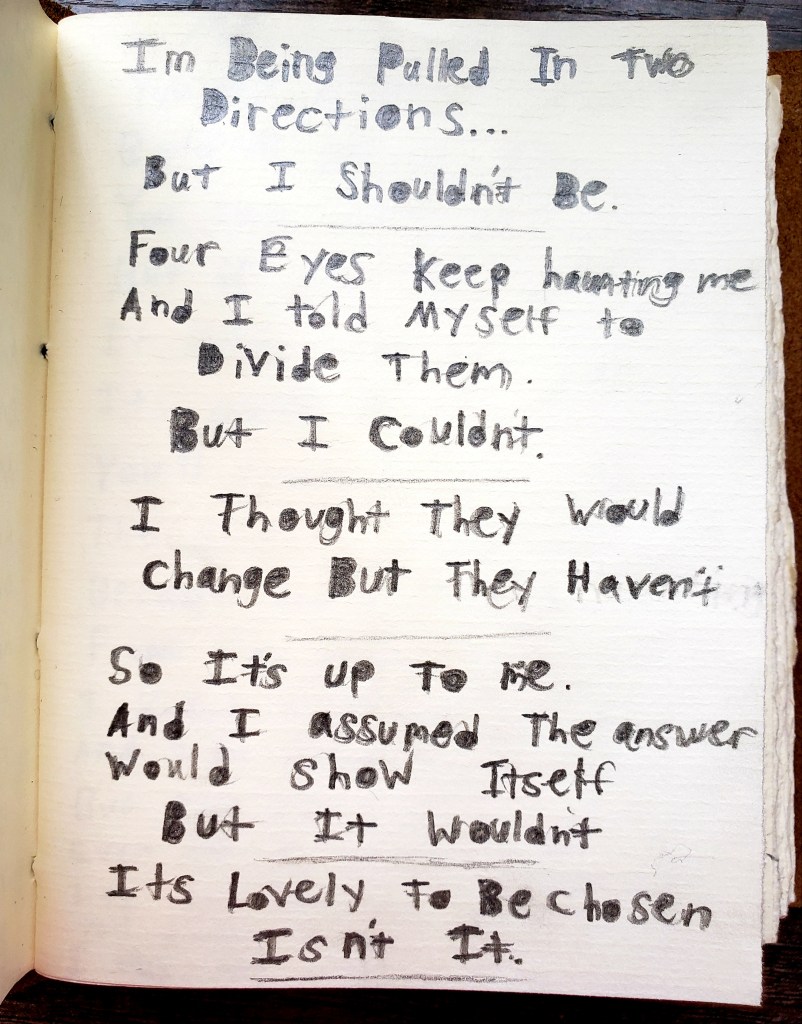 Im Being Pulled In Two
Directions...
But I Shouldn't Be.
Four Eyes Keep haunting me
And I told Myself to
Divide Them.
But I Couldn't.
I Thought They Would
Change But They Haven't
So It's up To me.
And I assumed The answer
Would show Itself
But It Wouldn't
Its Lovely To Be chosen
Isn't It.